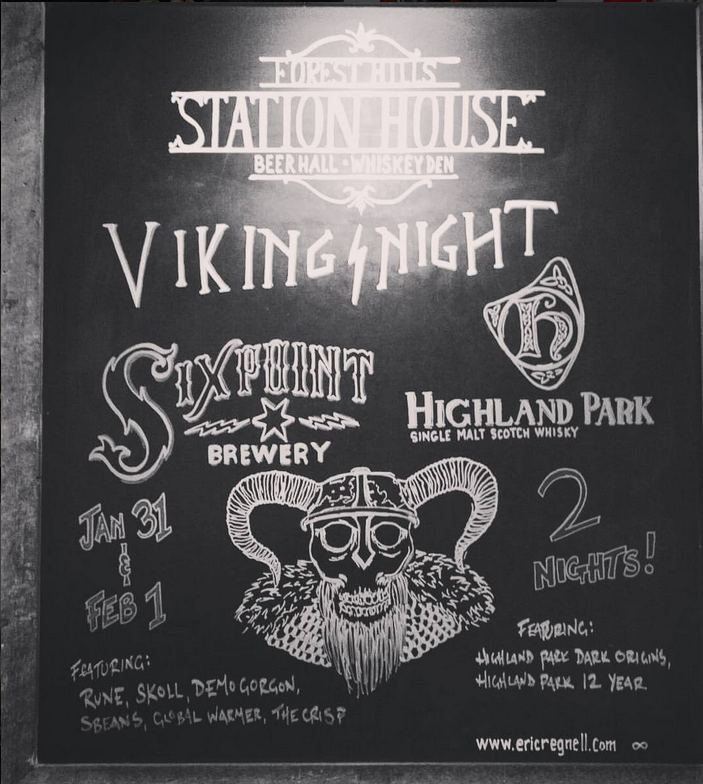 FOREST HILLS
STATION HOUSE
BEER HALL • WHISKEY DEN
VIKING NIGHT
SIXPOINT
BREWERY
H
HIGHLAND PARK
SINGLE MALT SCOTCH WHISKY
JAN 31
&
FEB 1
2
NIGHTS!
FEATURING:
RUNE, SKOLL, DEMOGORGON,
5BEANS, GLOBAL WARMER, THE CRISP
FEATURING:
HIGHLAND PARK DARK ORIGINS,
HIGHLAND PARK 12 YEAR
www.ericregnell.com ∞